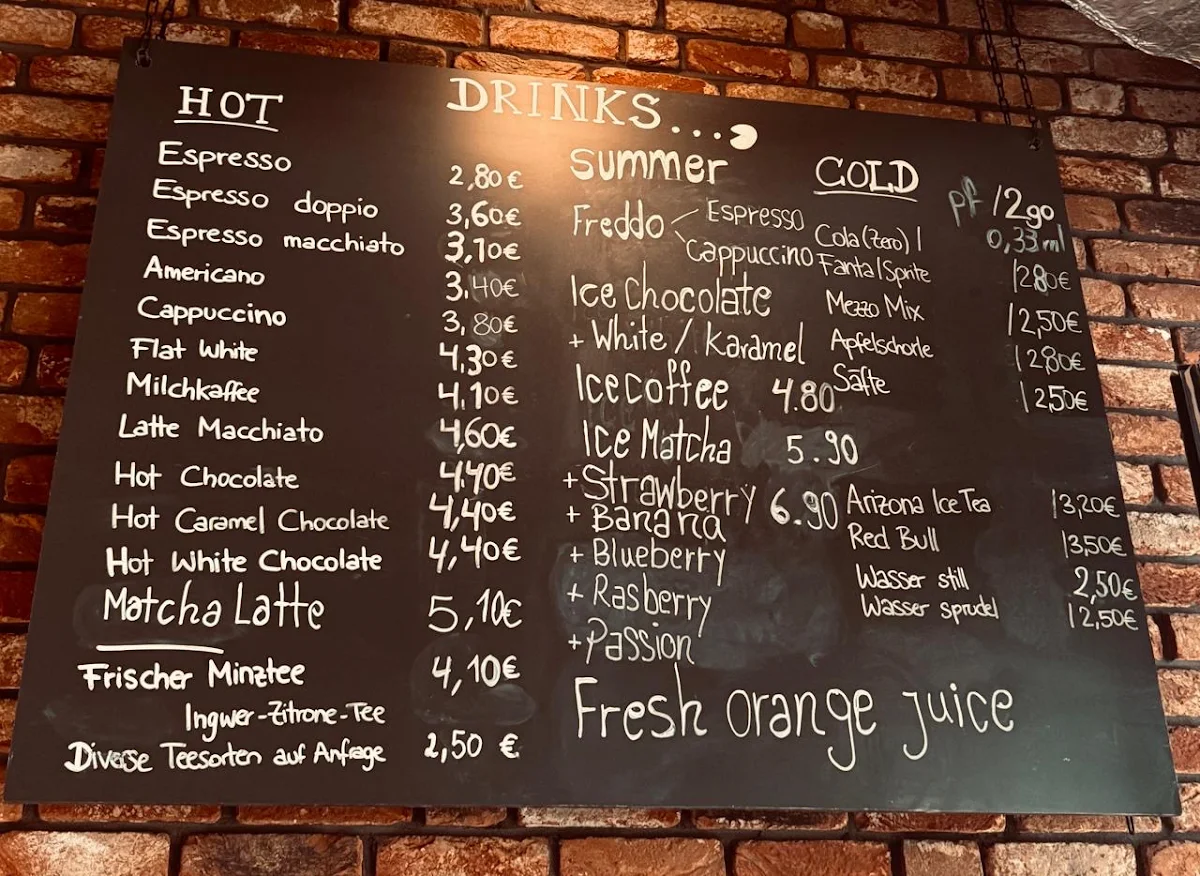 DRINKS...
HOT
Espresso 2,80€
Espresso doppio 3,60€
Espresso macchiato 3,10€
Americano 3,40€
Cappuccino 3,80€
Flat White 4,30€
Milchkaffee 4,10€
Latte Macchiato 4,60€
Hot Chocolate 4,40€
Hot Caramel Chocolate 4,40€
Hot White Chocolate 4,40€
Matcha Latte 5,10€
Frischer Minztee 4,10€
Ingwer-Zitrone-Tee
Diverse Teesorten auf Anfrage 2,50 €
summer
Freddo Espresso
Cappuccino
Ice Chocolate
+ White / Karamel
Icecoffee 4.80
Ice Matcha 5.90
+ Strawberry 6.90
+ Banana
+ Blueberry
+ Rasberry
+ Passion
Fresh orange juice
COLD pf /2go
0,33ml
Cola (Zero) |
Fanta | Sprite | 2,80€
Mezzo Mix | 2,50€
Apfelschorle | 2,80€
Säfte | 2,50€
Arizona Ice Tea | 3,20€
Red Bull | 3,50€
Wasser still 2,50€
Wasser sprudel | 2,50€